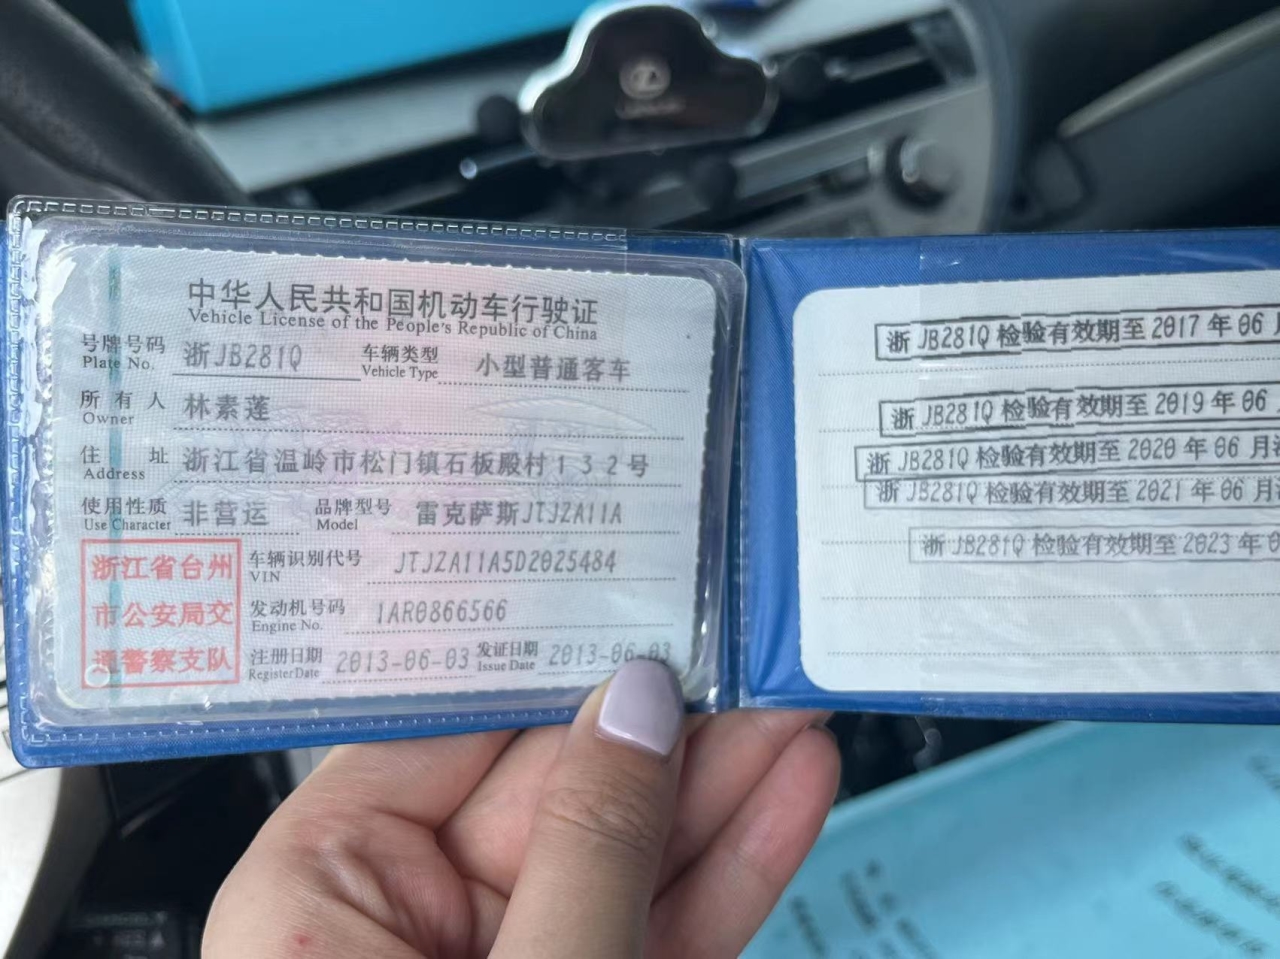 中华人民共和国机动车行驶证
Vehicle License of the People's Republic of China
号牌号码 浙JB281Q 车辆类型 小型普通客车
Plate No. Vehicle Type
所有人 林素莲
Owner
住址 浙江省温岭市松门镇石板殿村132号
Address
使用性质 非营运 品牌型号 雷克萨斯JTJZA11A
Use Character Model
浙江省台州
市公安局交
通警察支队
车辆识别代号 JTJZA11A5D2025484
VIN
发动机号码 1AR0866566
Engine No.
注册日期 2013-06-03 发证日期 2013-06-03
Register Date Issue Date
浙JB281Q检验有效期至2017年06月
浙JB281Q检验有效期至2019年06
浙JB281Q检验有效期至2020年06月
浙JB281Q检验有效期至2021年06月
浙JB281Q检验有效期至2023年